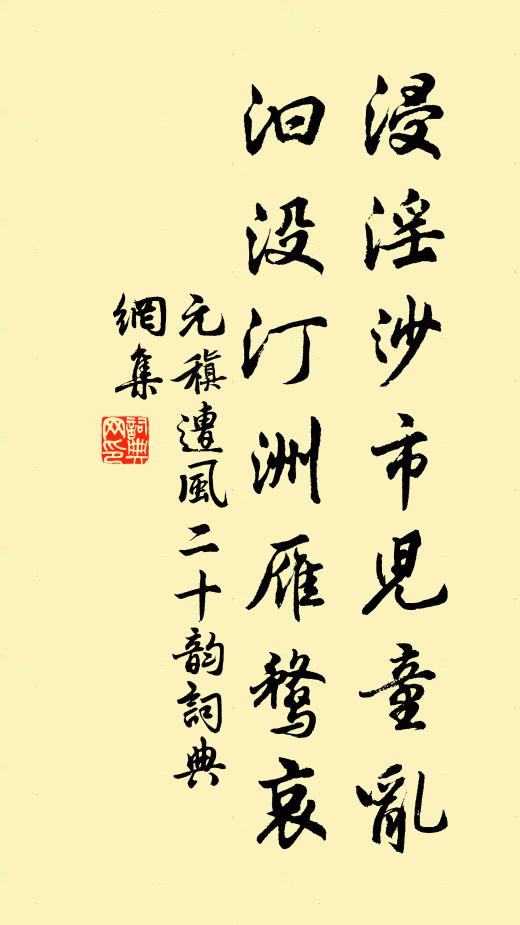 浸淫沙市兒童亂
汩没汀洲雁鶩哀
元稹遭風二十韵詞典
網集
詞典
网印